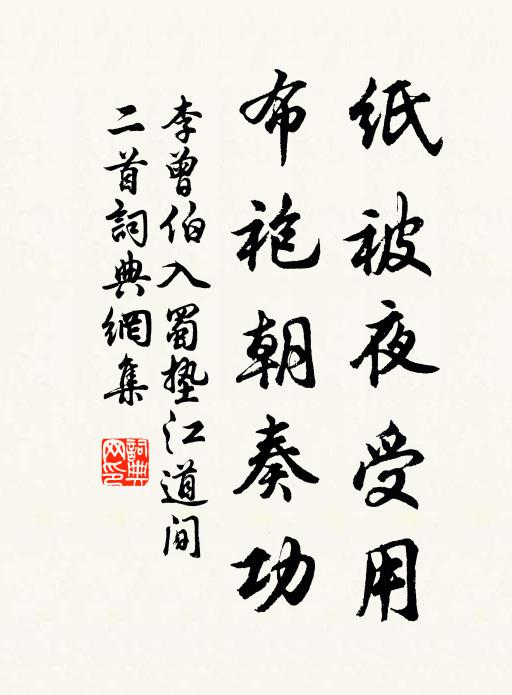 紙被夜受用
布袍朝奏功
李曾伯入蜀墊江道间
二首詞典網集
詞典網印